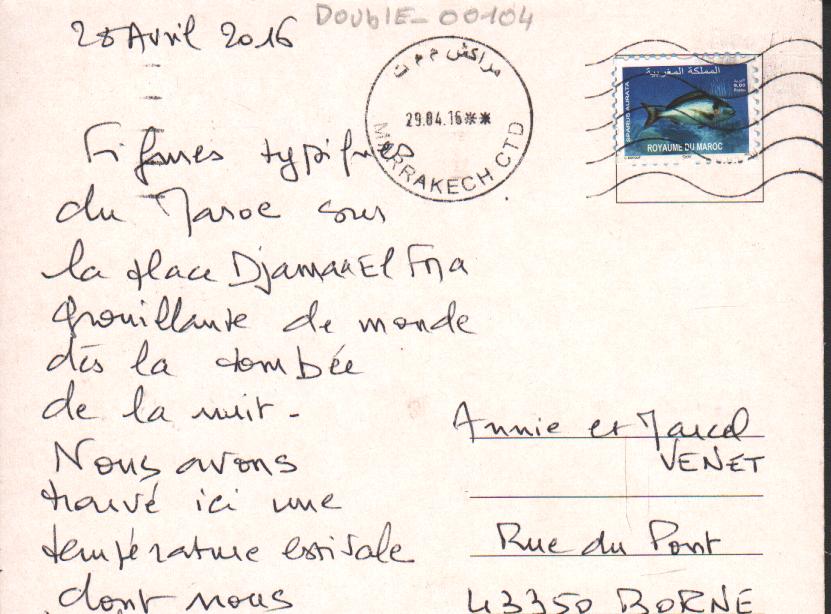 DOUBLE_00104
28 Avril 2016
مراكش م م ت
29.04.16**
MARRAKECH CTD
المملكة المغربية
9,00
SPARUS AURATA
ROYAUME DU MAROC
Figures typiques
du Maroc sur
la place Djamaa El Fna
grouillante de monde
dès la tombée
de la nuit -
Nous avons
trouvé ici une
température estivale
dont nous
Annie et Marcel
VENET
Rue du Pont
43350 BORNE